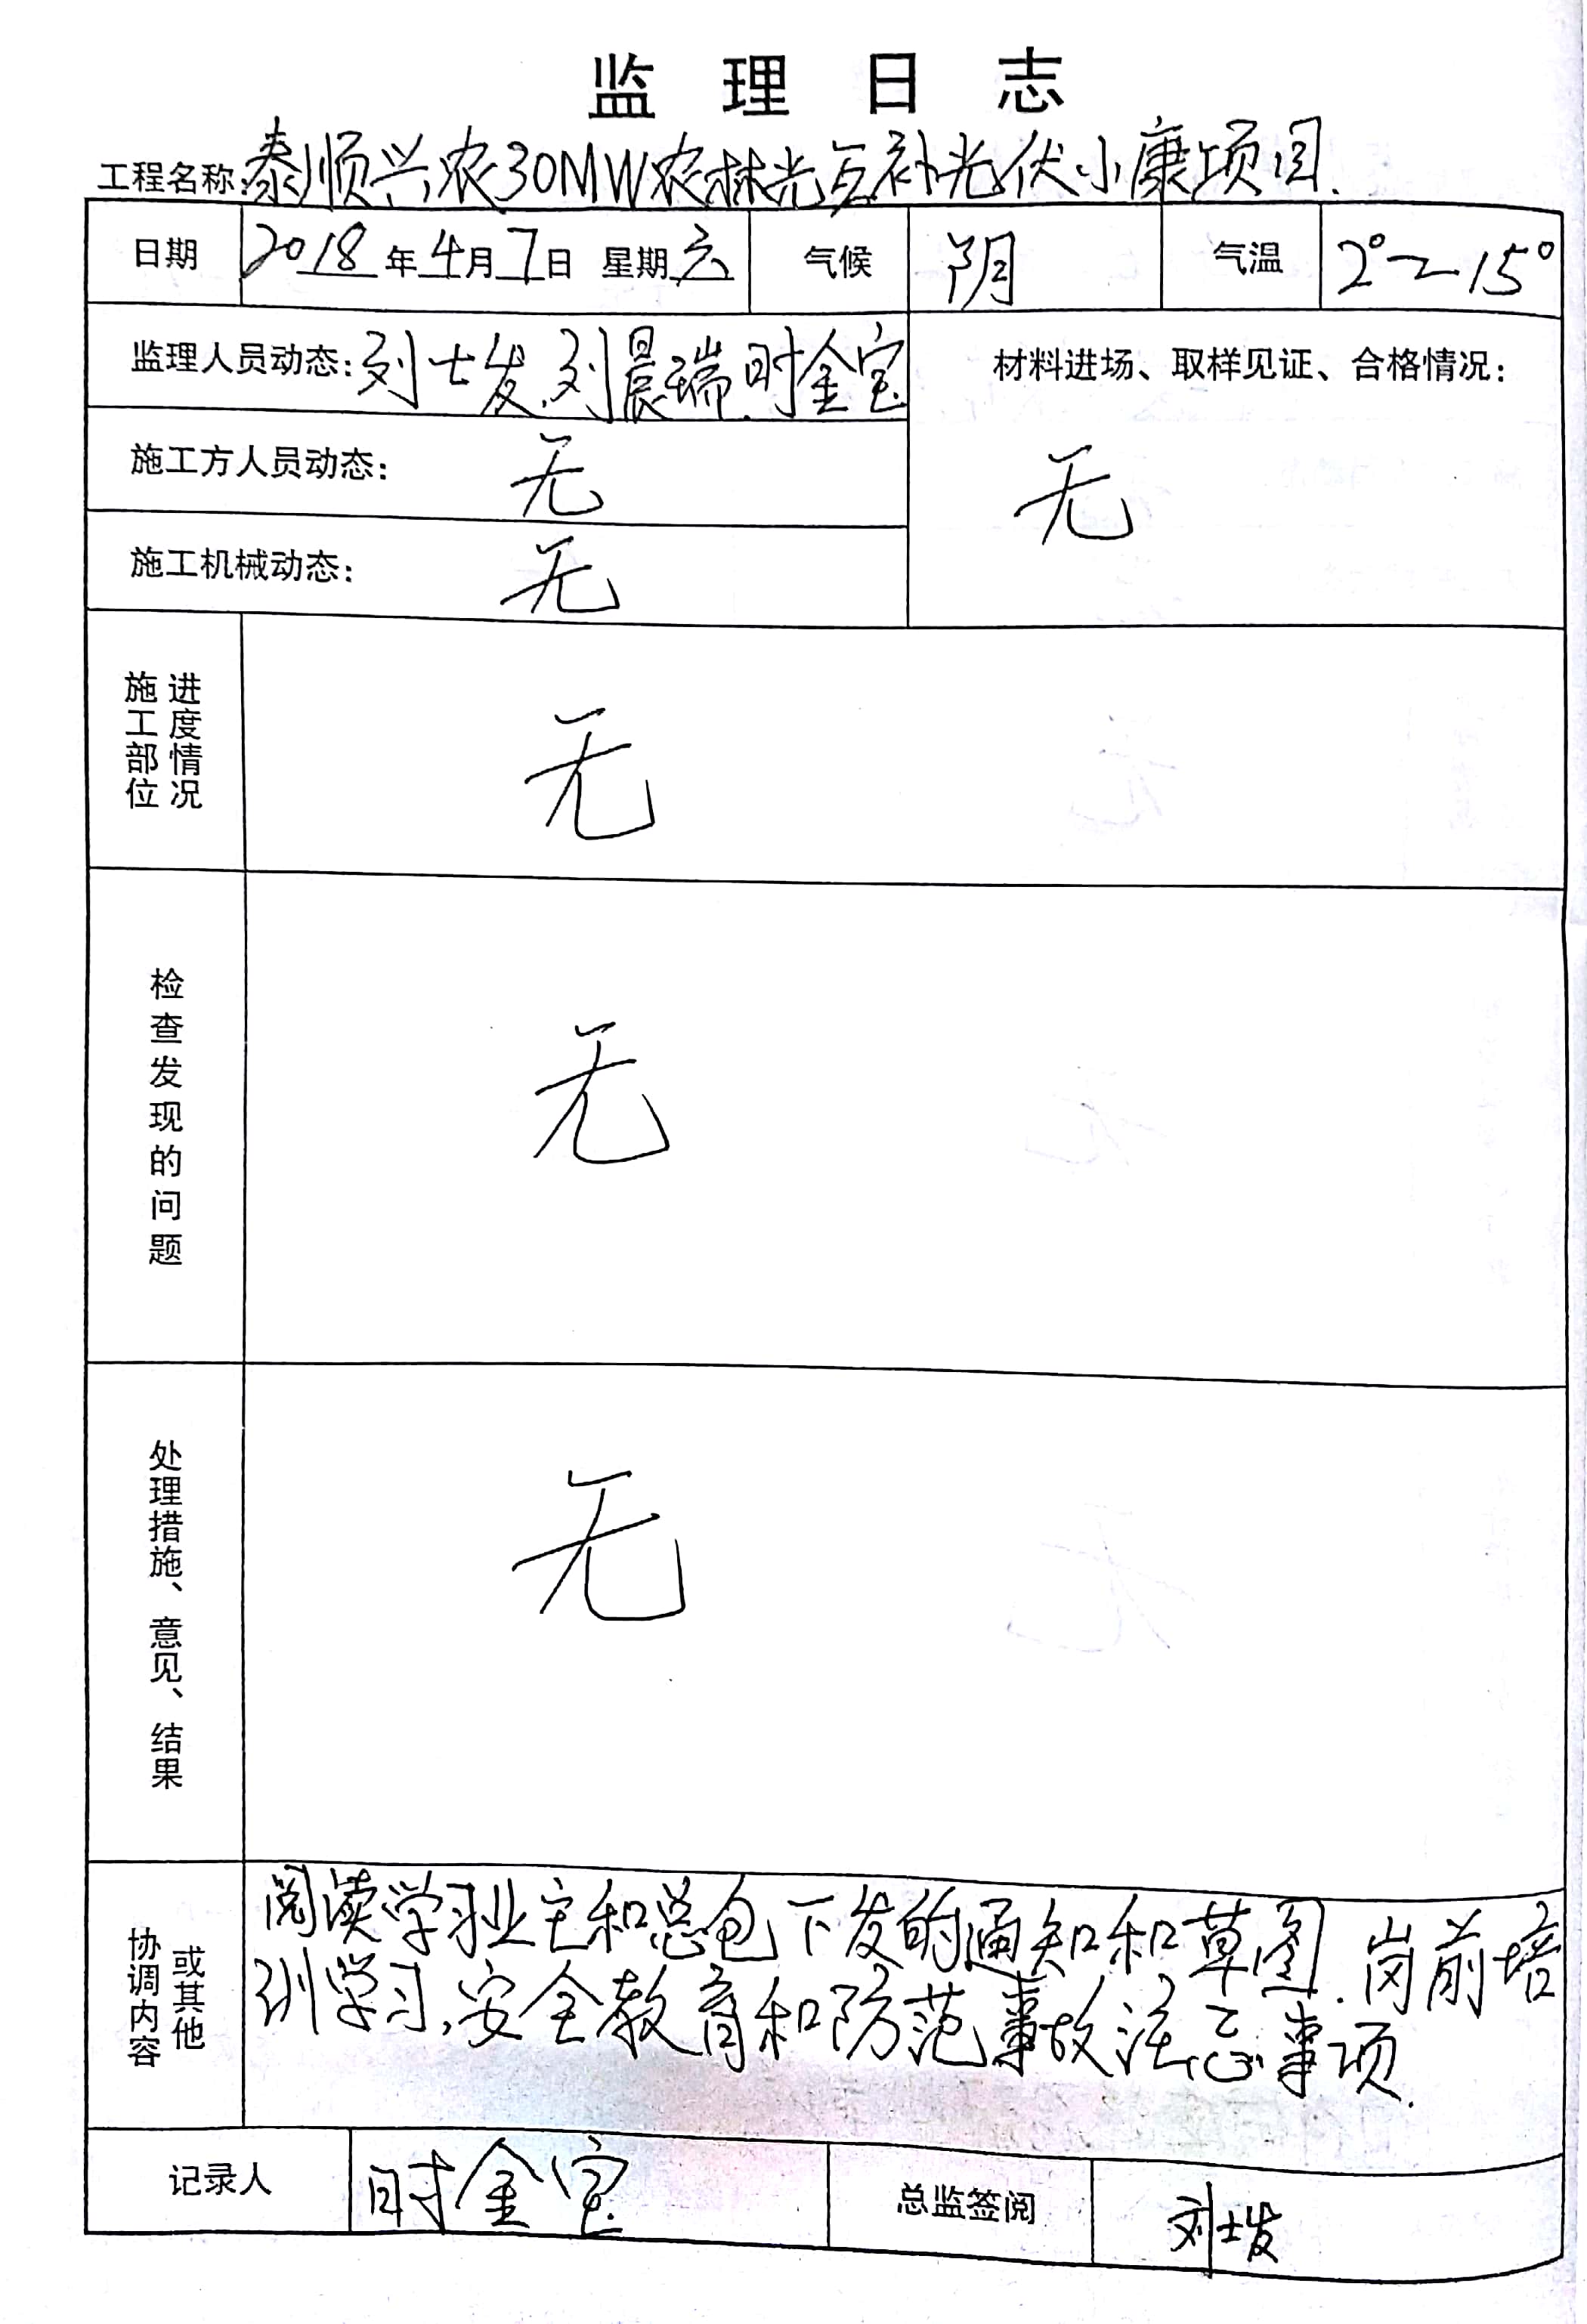 监理日志
工程名称:泰顺兴农30MW农林光互补光伏小康项目.
日期 2018年4月7日 星期六 气候 阴 气温 2°~15°
监理人员动态:刘士发.刘晨瑞.时金宝
材料进场、取样见证、合格情况:
无
施工方人员动态: 无
施工机械动态: 无
施工部位
进度情况
无
检查发现的问题
无
处理措施、意见、结果
无
协调内容
或其他
阅读学习业主和总包下发的通知和草图.岗前培
训学习,安全教育和防范事故注意事项.
记录人 时金宝 总监签阅 刘士发